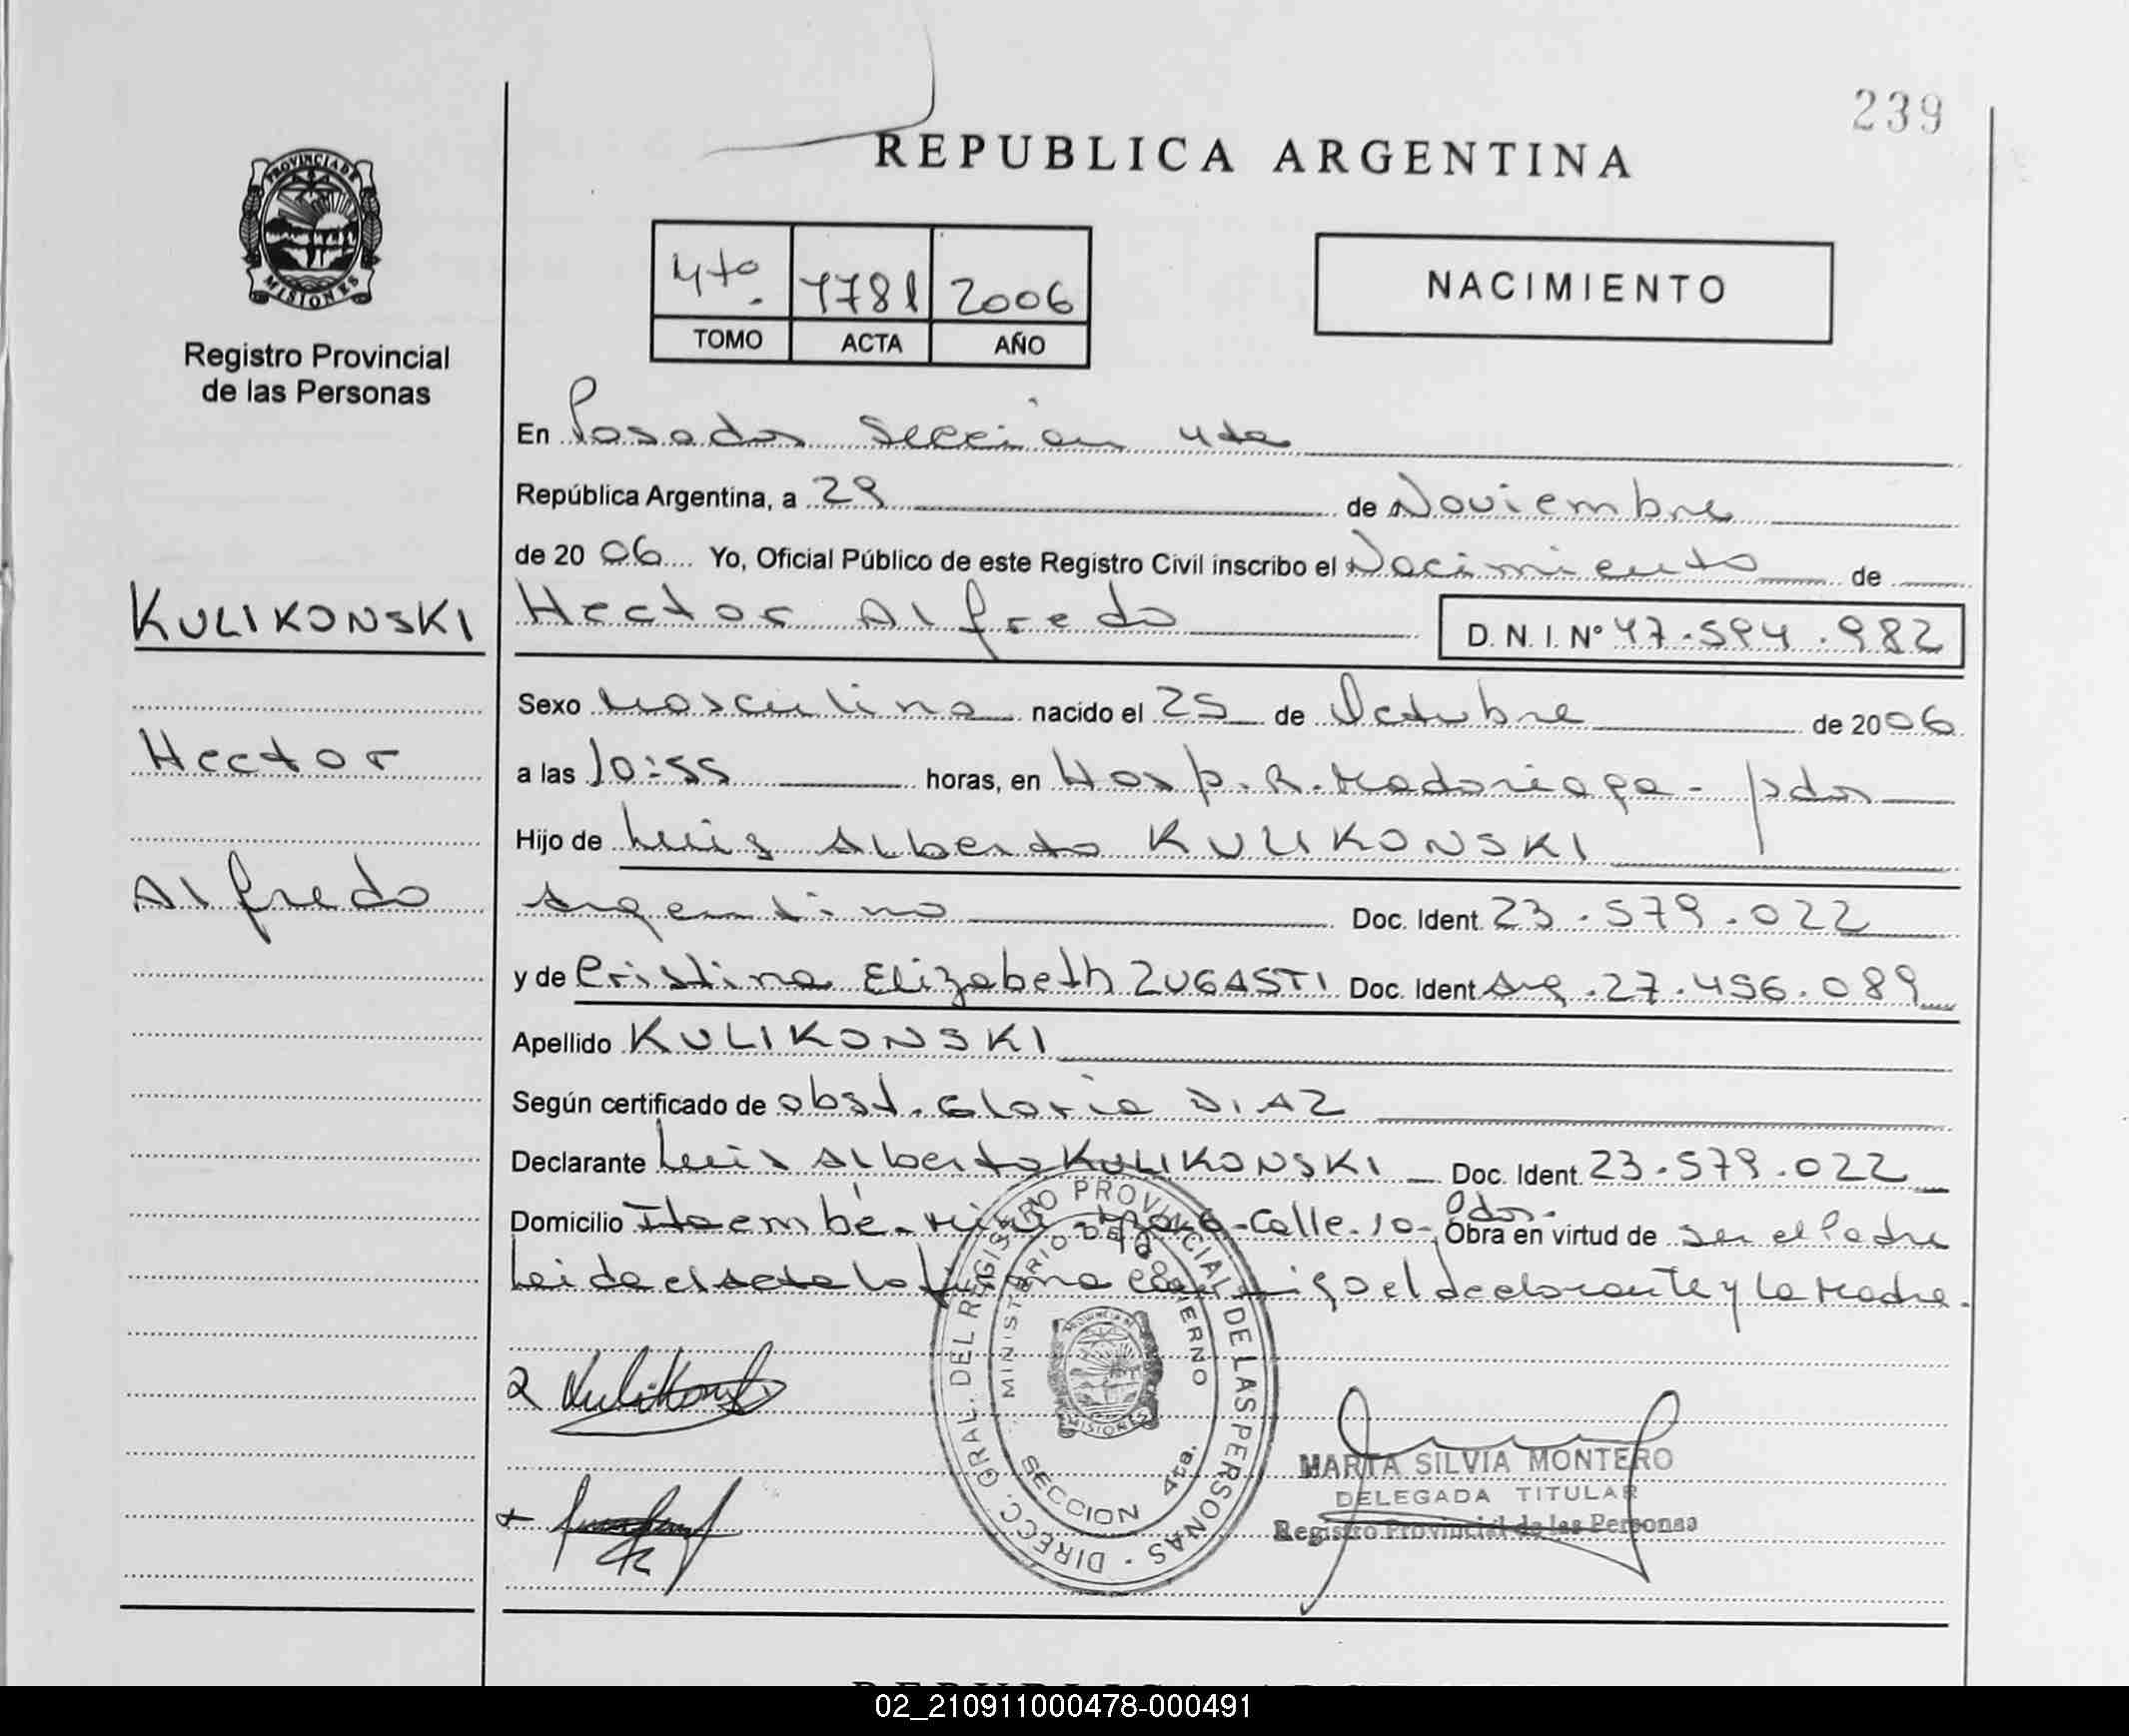 239
REPUBLICA ARGENTINA
PROVINCIA DE
MISIONES
Registro Provincial
de las Personas
4to. 1781 2006
TOMO ACTA AÑO
NACIMIENTO
En Posadas Sección 4ta
República Argentina, a 29 de Noviembre
de 2006 Yo, Oficial Público de este Registro Civil inscribo el Nacimiento de
KULIKONSKI
Hector Alfredo D. N. I. Nº 47.594.982
Sexo Masculino nacido el 25 de Octubre de 2006
Hector
a las 10:55 horas, en Hosp. R. Madariaga - pdas
Hijo de Luis Alberto KULIKONSKI
Alfredo
Argentino Doc. Ident. 23.579.022
y de Cristina Elizabeth ZUGASTI Doc. Ident Arg. 27.456.089
Apellido KULIKONSKI
Según certificado de obst. Gloria DIAZ
Declarante Luis Alberto KULIKONSKI Doc. Ident. 23.579.022
Domicilio Itaembé - Mini - Calle 10 - Pdas. Obra en virtud de ser el Padre
Leida el acta la firma conmigo el declarante y la Madre.
Kulikonski
DIRECC. GRAL. DEL REGISTRO PROVINCIAL DE LAS PERSONAS
MINISTERIO DE GOBIERNO
PROVINCIA DE
MISIONES
SECCION 4ta.
MARTA SILVIA MONTERO
DELEGADA TITULAR
Registro Provincial de las Personas
02_210911000478-000491